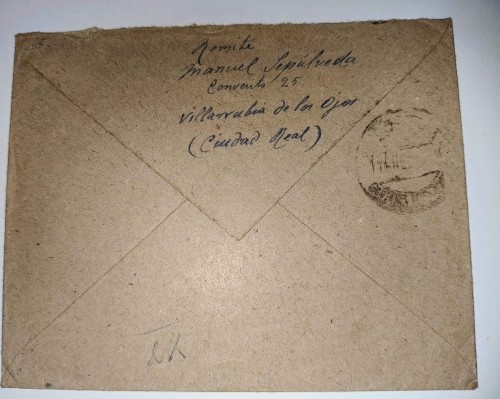 Remite
Manuel Sepúlveda
Convento 25
Villarrubia de los Ojos
(Ciudad Real)